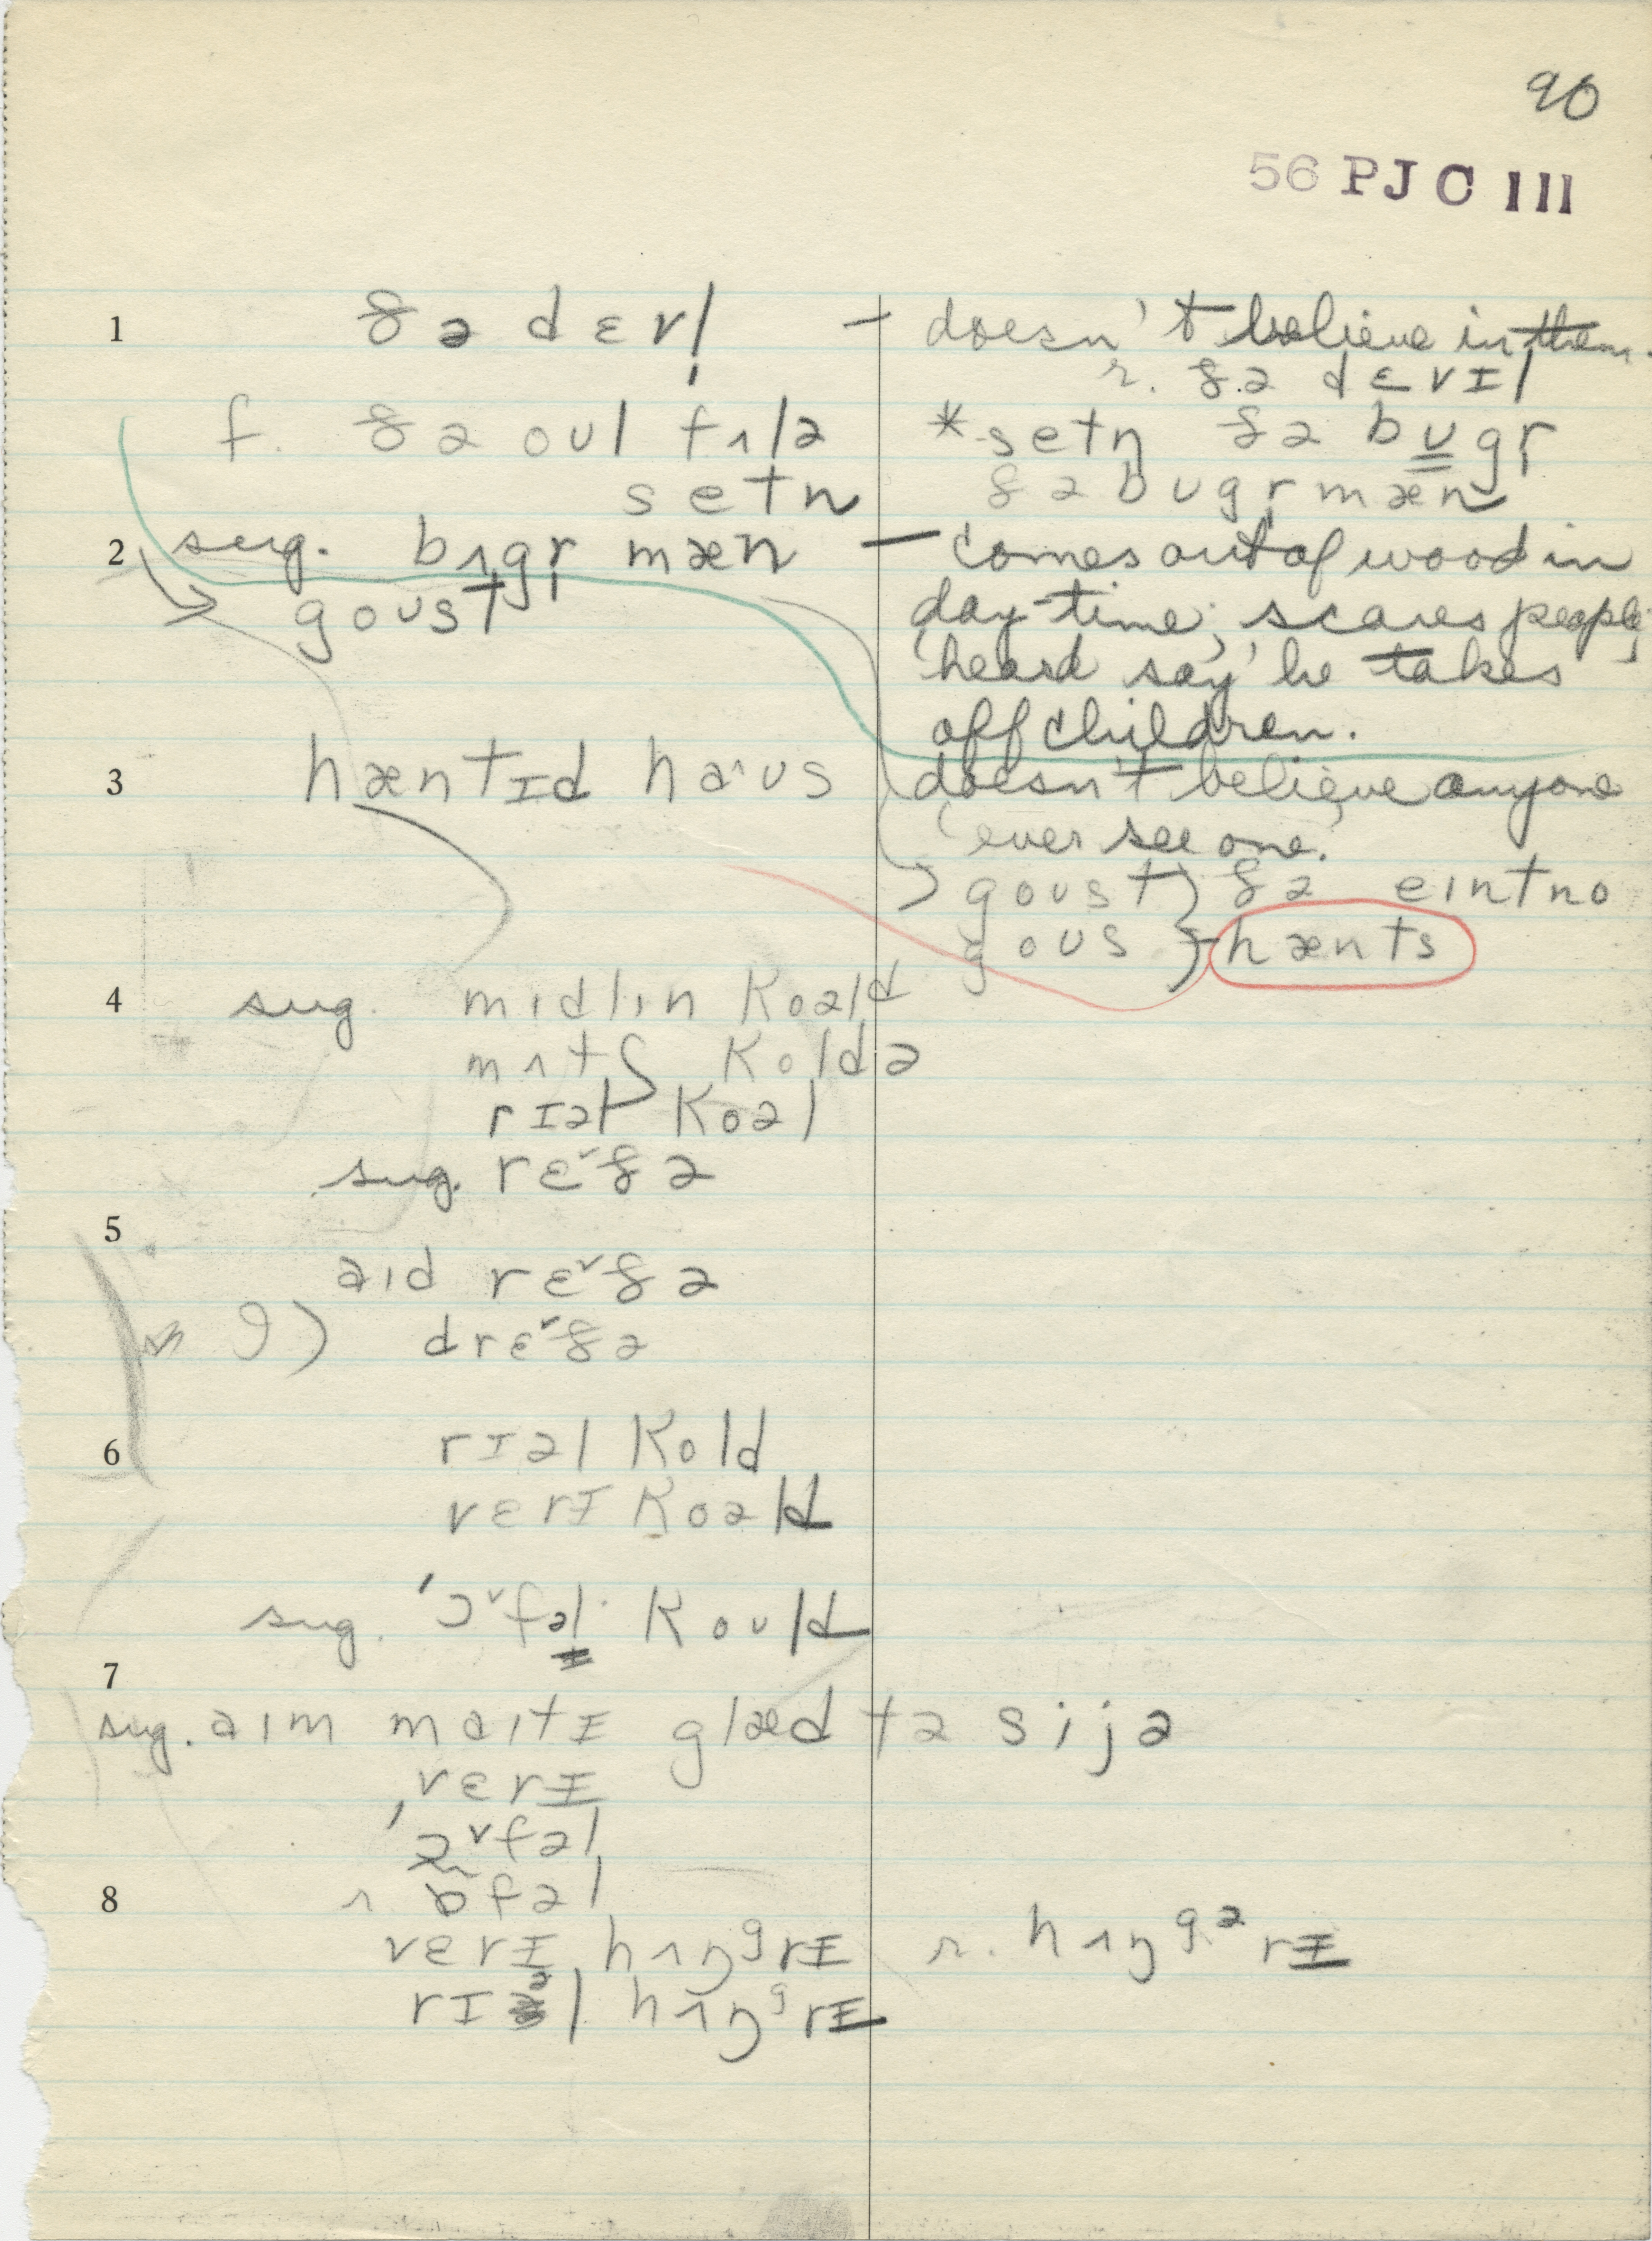 90
56 PJC III
1 ðə dɛvl̩ — doesn't believe in them.
r. ðə dɛvɪl
f. ðə oʊl fʌlə *setn̩ ðə bʊgr̩
setn ðə bʊgr̩mæn
2 sug. bʌgr̩ mæn — comes out of wood in
goʊst day-time; scares people;
'heard say' he takes
off children.
3 hæntɪd haˑʊs doesn't believe anyone
'ever see one.'
goʊst } ðə eɪntno
goʊs } hænts
4 sug. mɪdlɪn koəld
mʌtʃ koldə
rɪəl koəl
sug. rɛ˅ðə
5
aɪd rɛ˅ðə
9) drɛ˅ðə
6 rɪəl kold
vɛrɪ koəld
sug. 'ɔ˅fəl koʊld
7
sug. aɪm maɪtɪ glæd tə sijə
vɛrɪ
'ɔ˅fəl
8 r. ɒfəl
vɛrɪ hʌŋᵍrɪ r. hʌŋᵍᵊrɪ
rɪəl hʌŋᵍrɪ